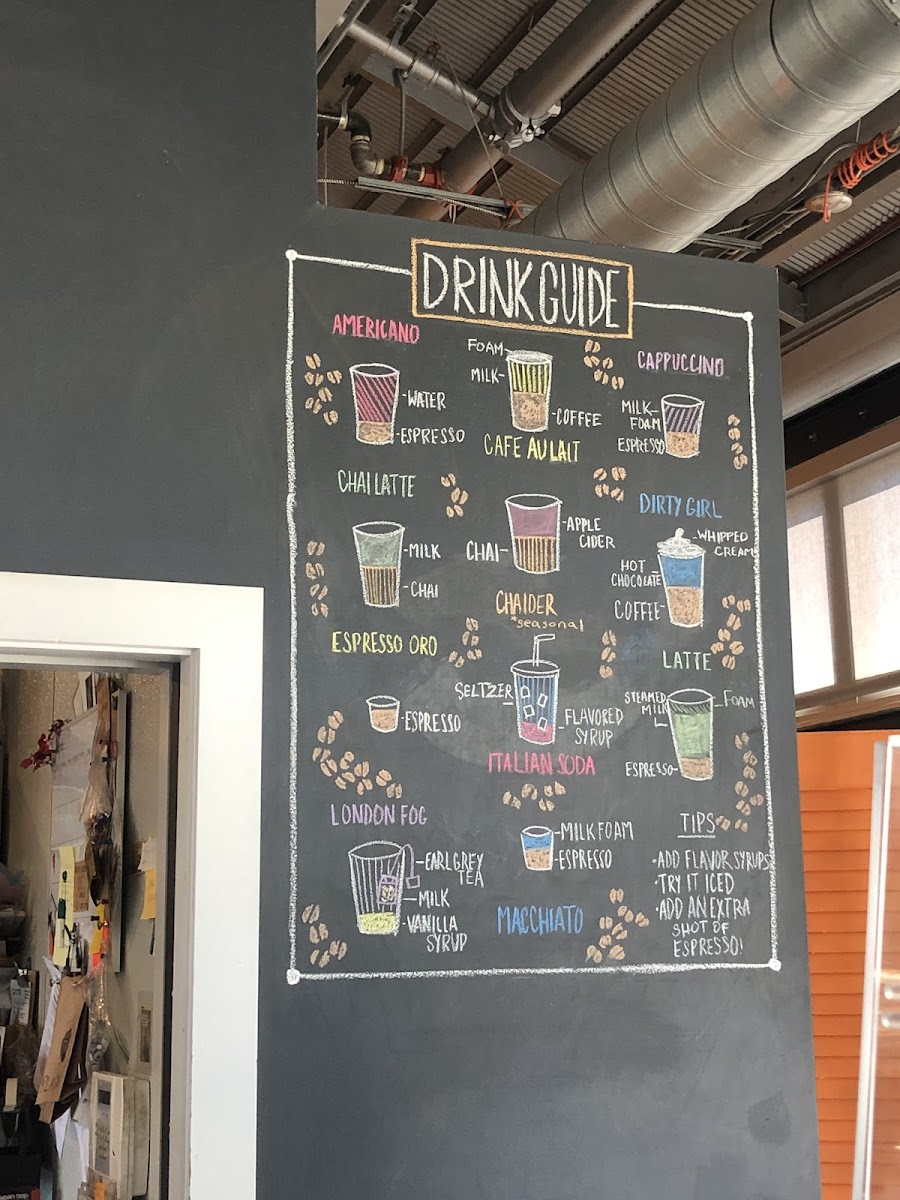 DRINK GUIDE
AMERICANO
WATER
ESPRESSO
FOAM
MILK
COFFEE
CAFE AU LAIT
CAPPUCCINO
MILK
FOAM
ESPRESSO
CHAI LATTE
MILK
CHAI
APPLE
CIDER
CHAI
CHAIDER
*seasonal
DIRTY GIRL
WHIPPED
CREAM
HOT
CHOCOLATE
COFFEE
ESPRESSO ORO
ESPRESSO
SELTZER
FLAVORED
SYRUP
ITALIAN SODA
LATTE
STEAMED
MILK
FOAM
ESPRESSO
LONDON FOG
EARL GREY
TEA
MILK
VANILLA
SYRUP
MILK FOAM
ESPRESSO
MACCHIATO
TIPS
•ADD FLAVOR SYRUPS
•TRY IT ICED
•ADD AN EXTRA
SHOT OF
ESPRESSO!